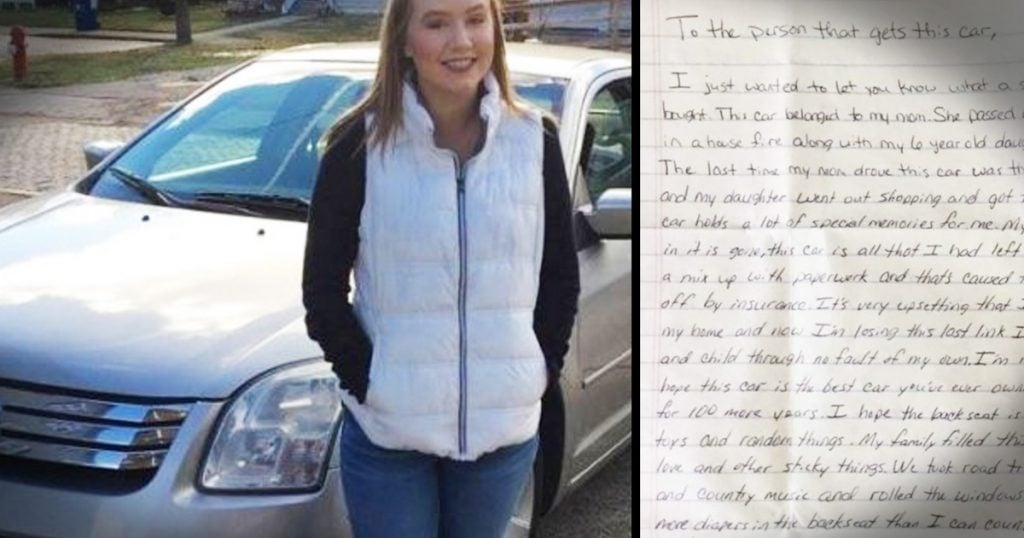 To the person that gets this car,
I just wanted to let you know what a s
bought. This car belonged to my mom. She passed
in a house fire along with my 6 year old daug
The last time my mom drove this car was th
and my daughter went out shopping and got
car holds a lot of special memories for me. My
in it is gone, this car is all that I had left
a mix up with paperwork and thats caused
off by insurance. It's very upsetting that I
my home and now I'm losing this last link I
and child through no fault of my own. I'm
hope this car is the best car you've ever own
for 100 more years. I hope the back seat is
toys and random things. My family filled thi
love and other sticky things. We took road tr
and country music and rolled the windows
more diapers in the backseat than I can coun